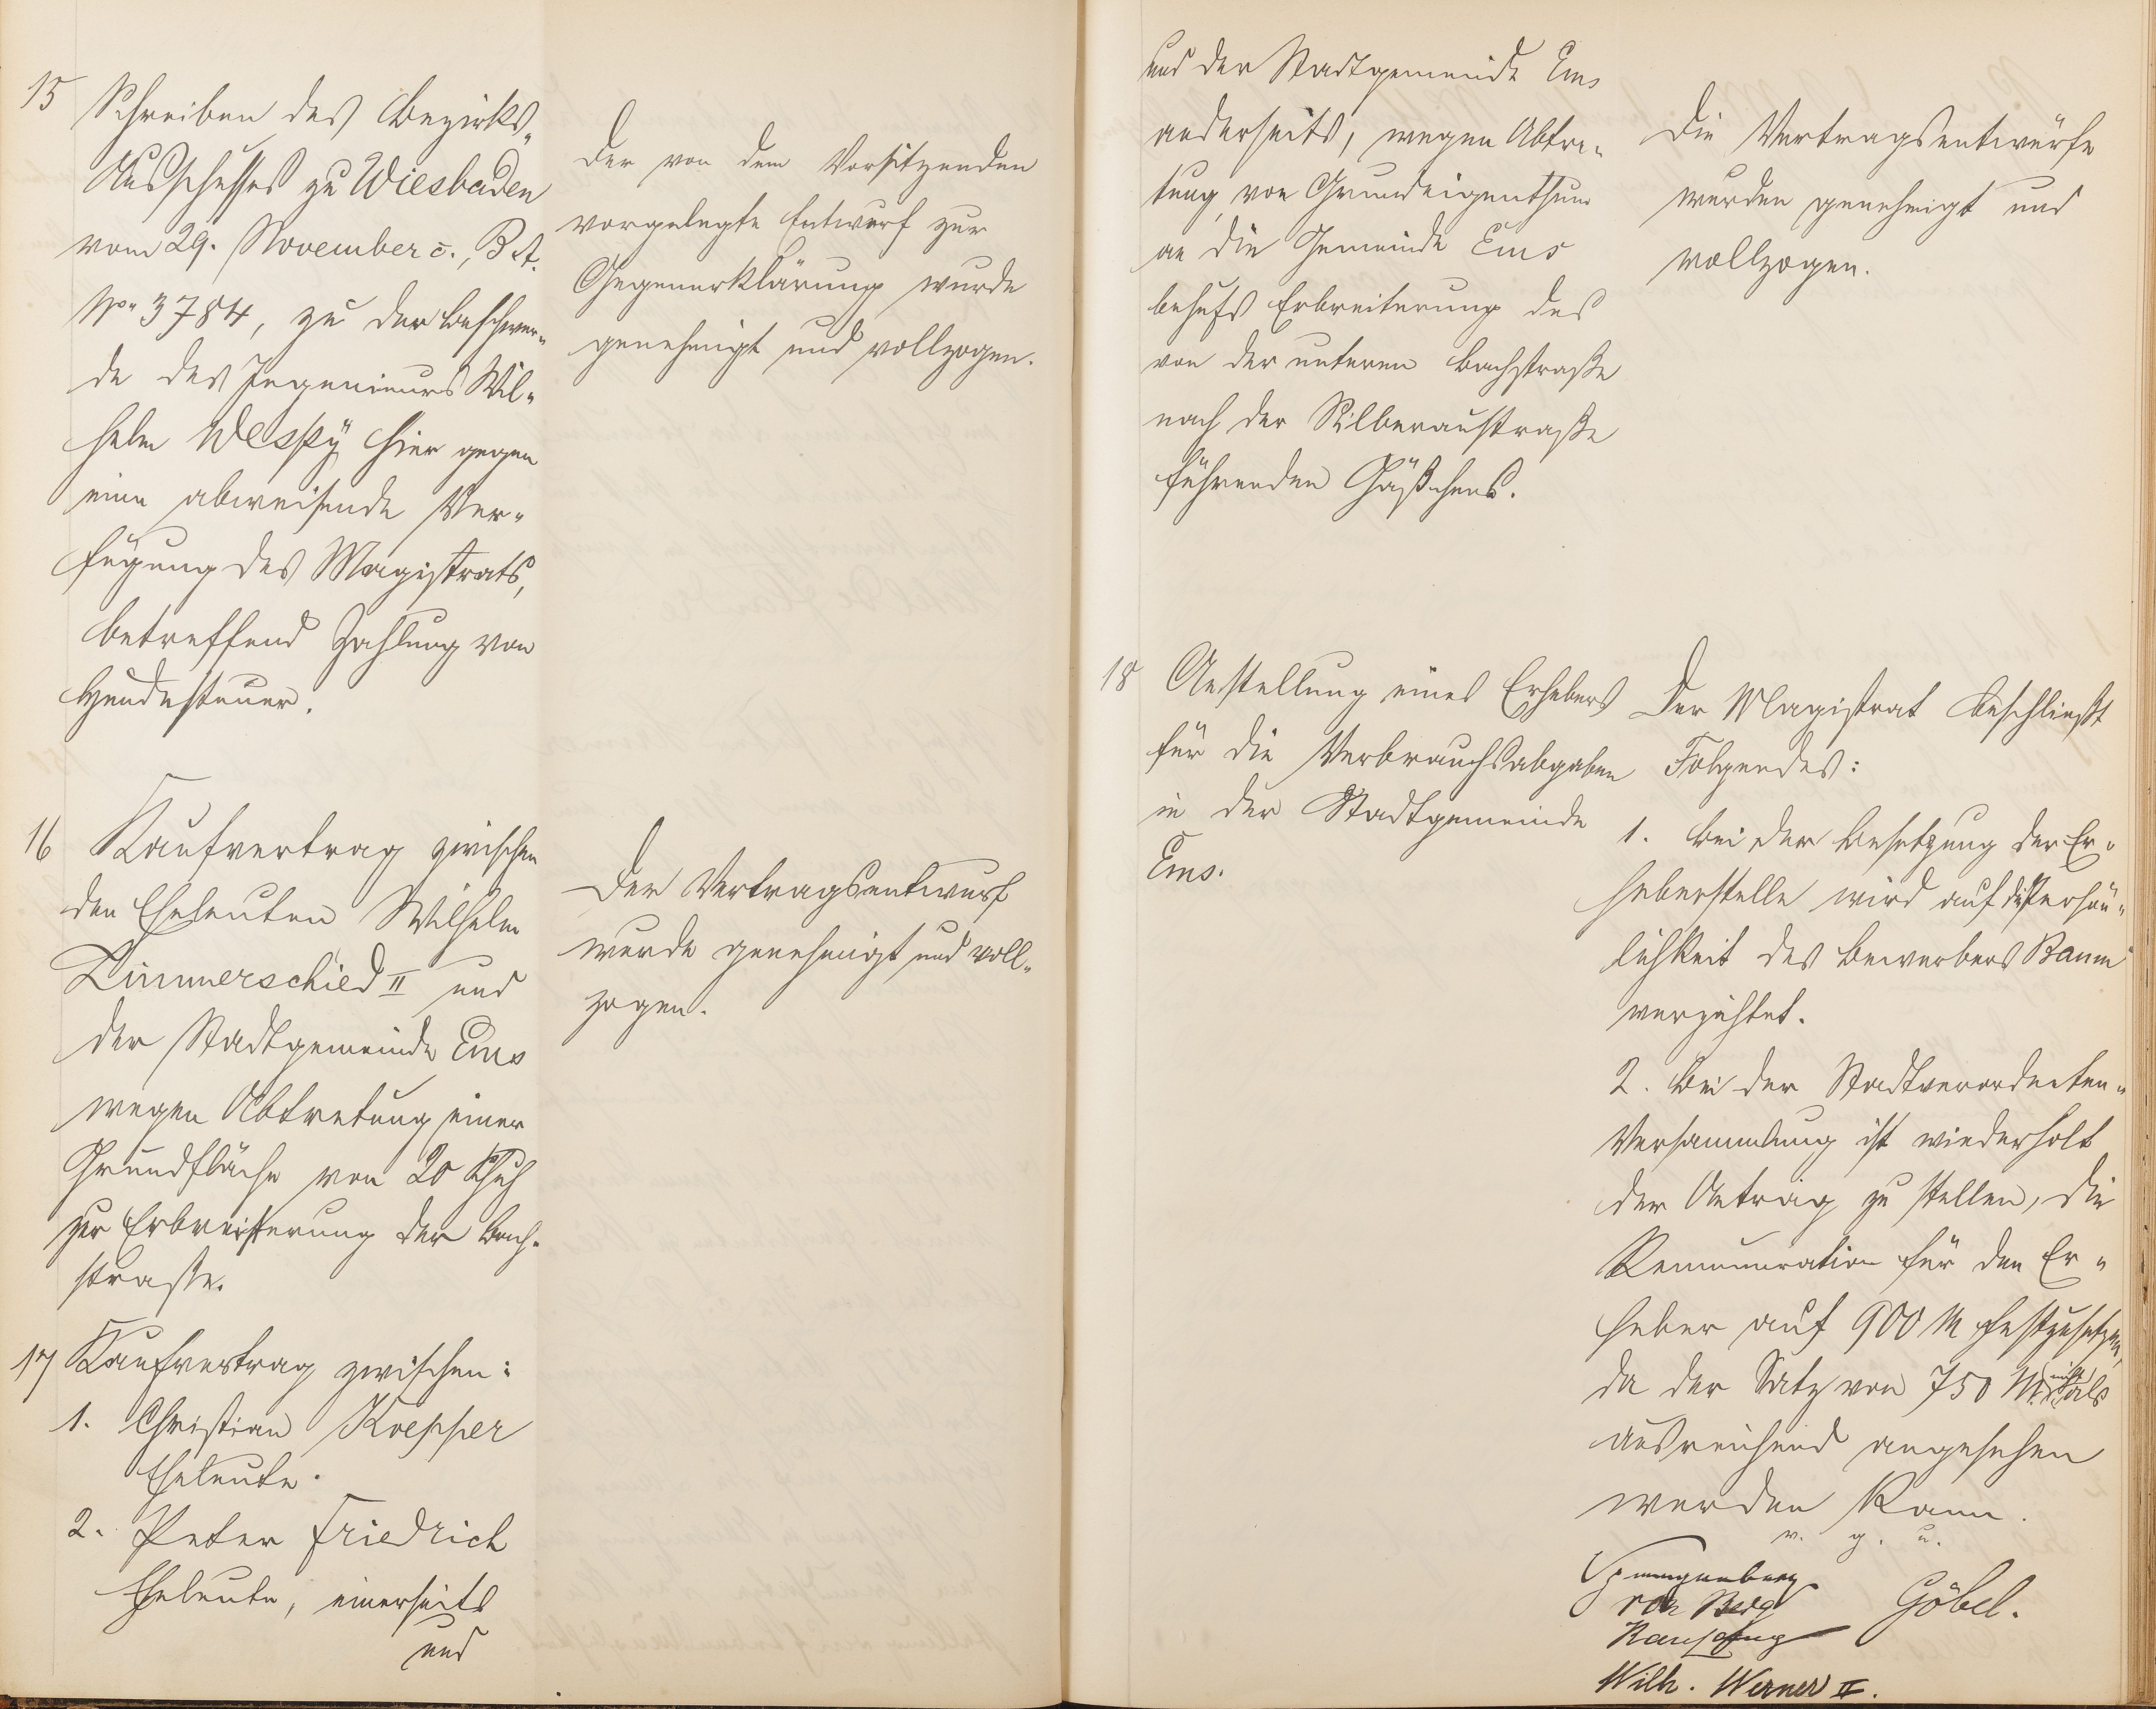 15 Schreiben des Bezirks-
Ausschusses zu Wiesbaden
vom 29. November c., B.A.
No 3784, zu der Beschwer-
de des Ingenieurs Wil-
helm Wespÿ hier gegen
eine abweisende Ver-
fügung des Magistrats,
betreffend Zahlung von
Hundesteuer.
Der von dem Vorsitzenden
vorgelegte Entwurf zur
Gegenerklärung wurde
genehmigt und vollzogen.
16 Kaufvertrag zwischen
den Eheleuten Wilhelm
Linnerschied II und
der Stadtgemeinde Ems
wegen Abtretung einer
Grundfläche von 20 Schuh
zur Erbreiterung der Bach-
straße.
Der Vertragsentwurf
wurde genehmigt und voll-
zogen.
17 Kaufvertrag zwischen:
1. Christian Koepper
Eheleute.
2. Peter Friedrich
Eheleute, einerseits
und
und der Stadtgemeinde Ems
anderseits, wegen Abtre-
tung von Grundeigenthum
an die Gemeinde Ems
behufs Erbreiterung des
von der unteren Bachstraße
nach der Silberaustraße
führenden Gäßchens.
Die Vertragsentwürfe
wurden genehmigt und
vollzogen.
18 Anstellung eines Erhebers
für die Verbrauchsabgaben
in der Stadtgemeinde
Ems.
Der Magistrat beschließt
Folgendes:
1. Bei der Besetzung der Er-
heberstelle wird auf die Persön-
lichkeit des Bewerbers Baum
verzichtet.
2. Bei der Stadtverordneten-
Versammlung ist wiederholt
der Antrag zu stellen, die
Remuneration für den Er-
heber auf 900 M festzusetzen,
da der Satz von 750 M. nicht als
ausreichend angesehen
werden kann.
v. g. u.
Spangenberg
von Berg
Göbel.
Wilh. Werner II.